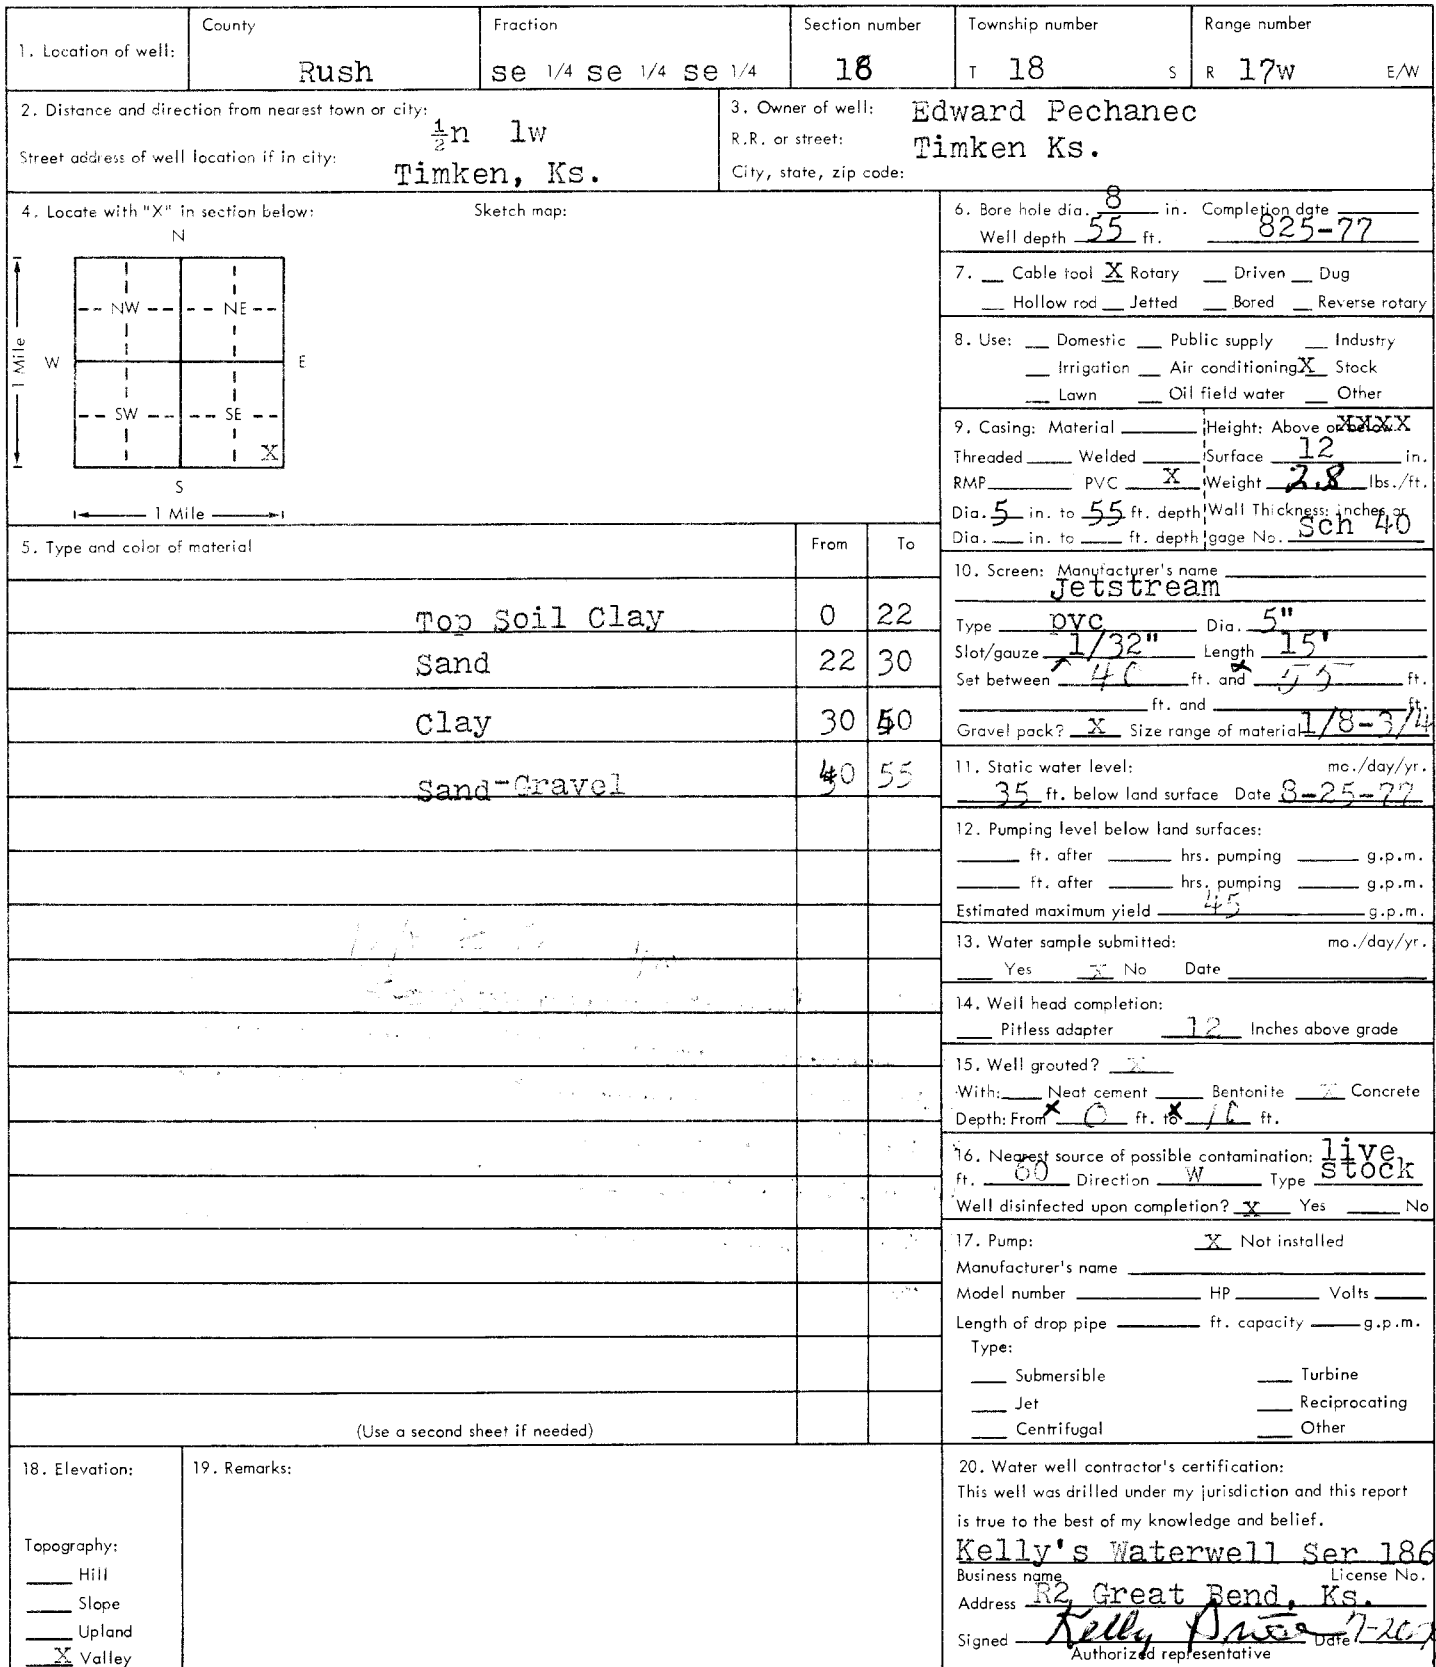 1. Location of well:
County
Rush
Fraction
se 1/4 se 1/4 se 1/4
Section number
18
Township number
T 18 S
Range number
R 17w E/W
2. Distance and direction from nearest town or city:
½n 1w
Street address of well location if in city:
Timken, Ks.
3. Owner of well: Edward Pechanec
R.R. or street: Timken Ks.
City, state, zip code:
4. Locate with "X" in section below: Sketch map:
N
NW NE
W E
1 Mile
SW SE
X
S
1 Mile
5. Type and color of material From To
Top Soil Clay 0 22
Sand 22 30
Clay 30 40
Sand-Gravel 40 55
(Use a second sheet if needed)
6. Bore hole dia. 8 in. Completion date
Well depth 55 ft. 825-77
7. Cable tool X Rotary Driven Dug
Hollow rod Jetted Bored Reverse rotary
8. Use: Domestic Public supply Industry
Irrigation Air conditioning X Stock
Lawn Oil field water Other
9. Casing: Material Height: Above or below XXXX
Threaded Welded Surface 12 in.
RMP PVC X Weight 2.8 lbs./ft.
Dia. 5 in. to 55 ft. depth Wall Thickness: inches or
Dia. in. to ft. depth gage No. Sch 40
10. Screen: Manufacturer's name
Jetstream
Type pvc Dia. 5"
Slot/gauze 1/32" Length 15'
Set between 40 ft. and 55 ft.
ft. and ft.
Gravel pack? X Size range of material 1/8-3/4
11. Static water level: mo./day/yr.
35 ft. below land surface Date 8-25-77
12. Pumping level below land surfaces:
ft. after hrs. pumping g.p.m.
ft. after hrs. pumping g.p.m.
Estimated maximum yield 45 g.p.m.
13. Water sample submitted: mo./day/yr.
Yes X No Date
14. Well head completion:
Pitless adapter 12 Inches above grade
15. Well grouted? X
With: Neat cement Bentonite X Concrete
Depth: From 0 ft. to 10 ft.
16. Nearest source of possible contamination: live
ft. 60 Direction W Type stock
Well disinfected upon completion? X Yes No
17. Pump: X Not installed
Manufacturer's name
Model number HP Volts
Length of drop pipe ft. capacity g.p.m.
Type:
Submersible Turbine
Jet Reciprocating
Centrifugal Other
18. Elevation:
Topography:
Hill
Slope
Upland
X Valley
19. Remarks:
20. Water well contractor's certification:
This well was drilled under my jurisdiction and this report
is true to the best of my knowledge and belief.
Kelly's Waterwell Ser 186
Business name License No.
Address R2 Great Bend, Ks.
Signed Kelly Date
Authorized representative